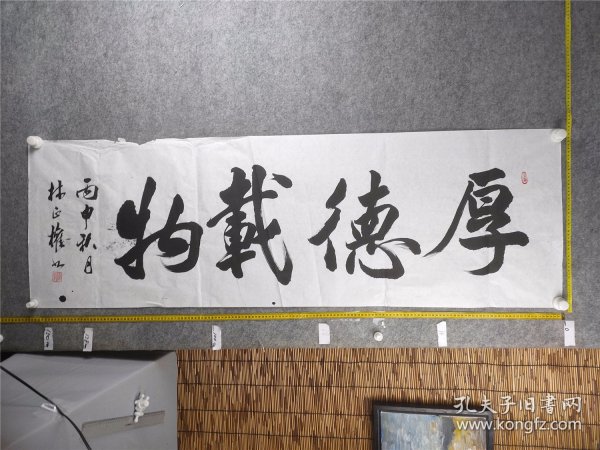 厚德載物
丙申秋月
林正權书
孔夫子旧书网
www.kongfz.com